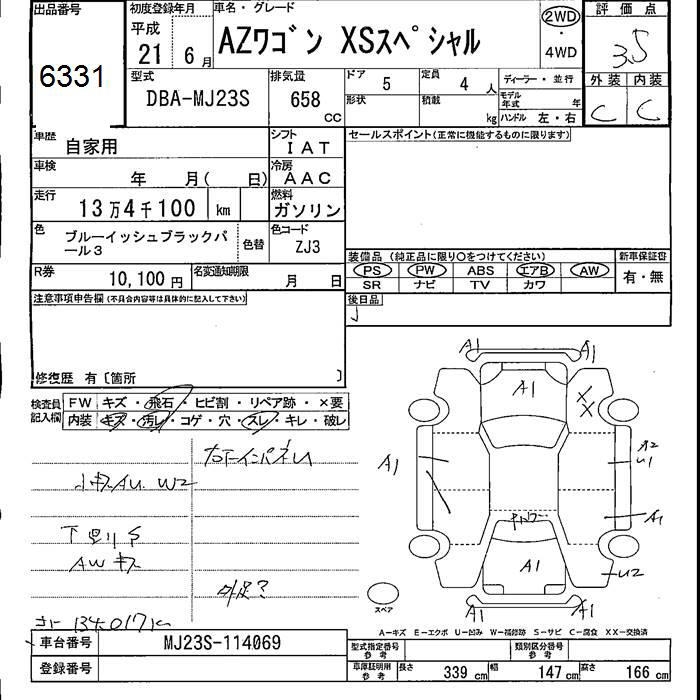 出品番号
6331
初度登録年月
平成
21年 6月
車名・グレード
AZワゴン XSスペシャル
2WD
・
4WD
評価点
3.5
外装 内装
C C
型式
DBA-MJ23S
排気量
658
CC
ドア
5
定員
4 人
形状
積載
kg
ディーラー・並行
モデル年式 年
ハンドル 左・右
車歴
自家用
シフト
IAT
車検
年 月( 日)
冷房
AAC
走行
13万4千100 km
燃料
ガソリン
色
ブルーイッシュブラックパール3
色替
色コード
ZJ3
R券
10,100円
名変通知期限
月 日
セールスポイント(正常に機能するものに限ります)
装備品(純正品に限り○をつけてください)
PS PW ABS エアB AW
SR ナビ TV カワ
新車保証書
有・無
後日品
注意事項申告欄(不具合内容等は具体的に記入して下さい)
修復歴 有〔箇所 〕
検査員記入欄
FW キズ・飛石・ヒビ割・リペア跡・×要
内装 キズ・汚レ・コゲ・穴・スレ・キレ・破レ
小キズAU W2
AWキズ
外足?
134017K
A1 A1
A1
XX
A1
A2
U1
A1
A1
U2
A1 A1
スペア
A−キズ E−エクボ U−凹み W−補修跡 S−サビ C−腐食 XX−交換済
車台番号
MJ23S-114069
登録番号
型式指定番号 参考
類別区分番号 参考
車庫証明用 参考
長さ 339 cm
幅 147 cm
高さ 166 cm